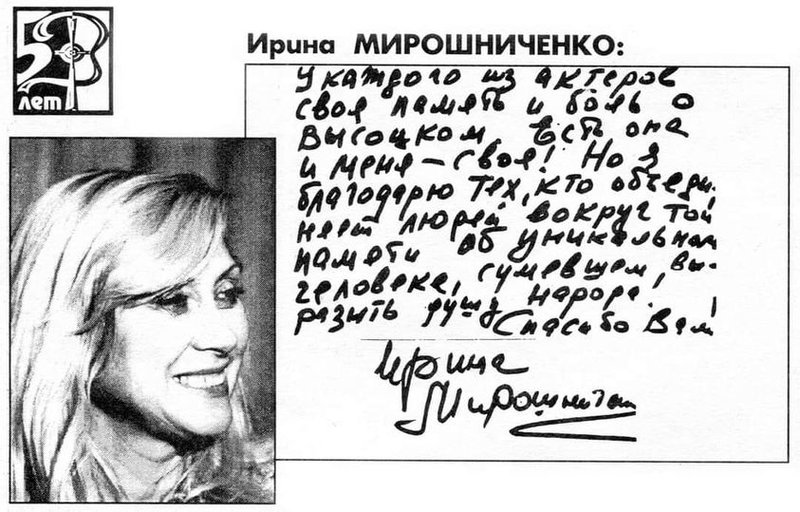 52 В
лет
Ирина МИРОШНИЧЕНКО:
У каждого из актеров
своя память и боль о
Высоцком. Есть она
и меня – своя! Но я
благодарю тех, кто объеди.
няет людей вокруг той
памяти об уникальном
человеке, сумевшем вы-
разить душу народа!
Спасибо Вам!
Ирина
Мирошничен